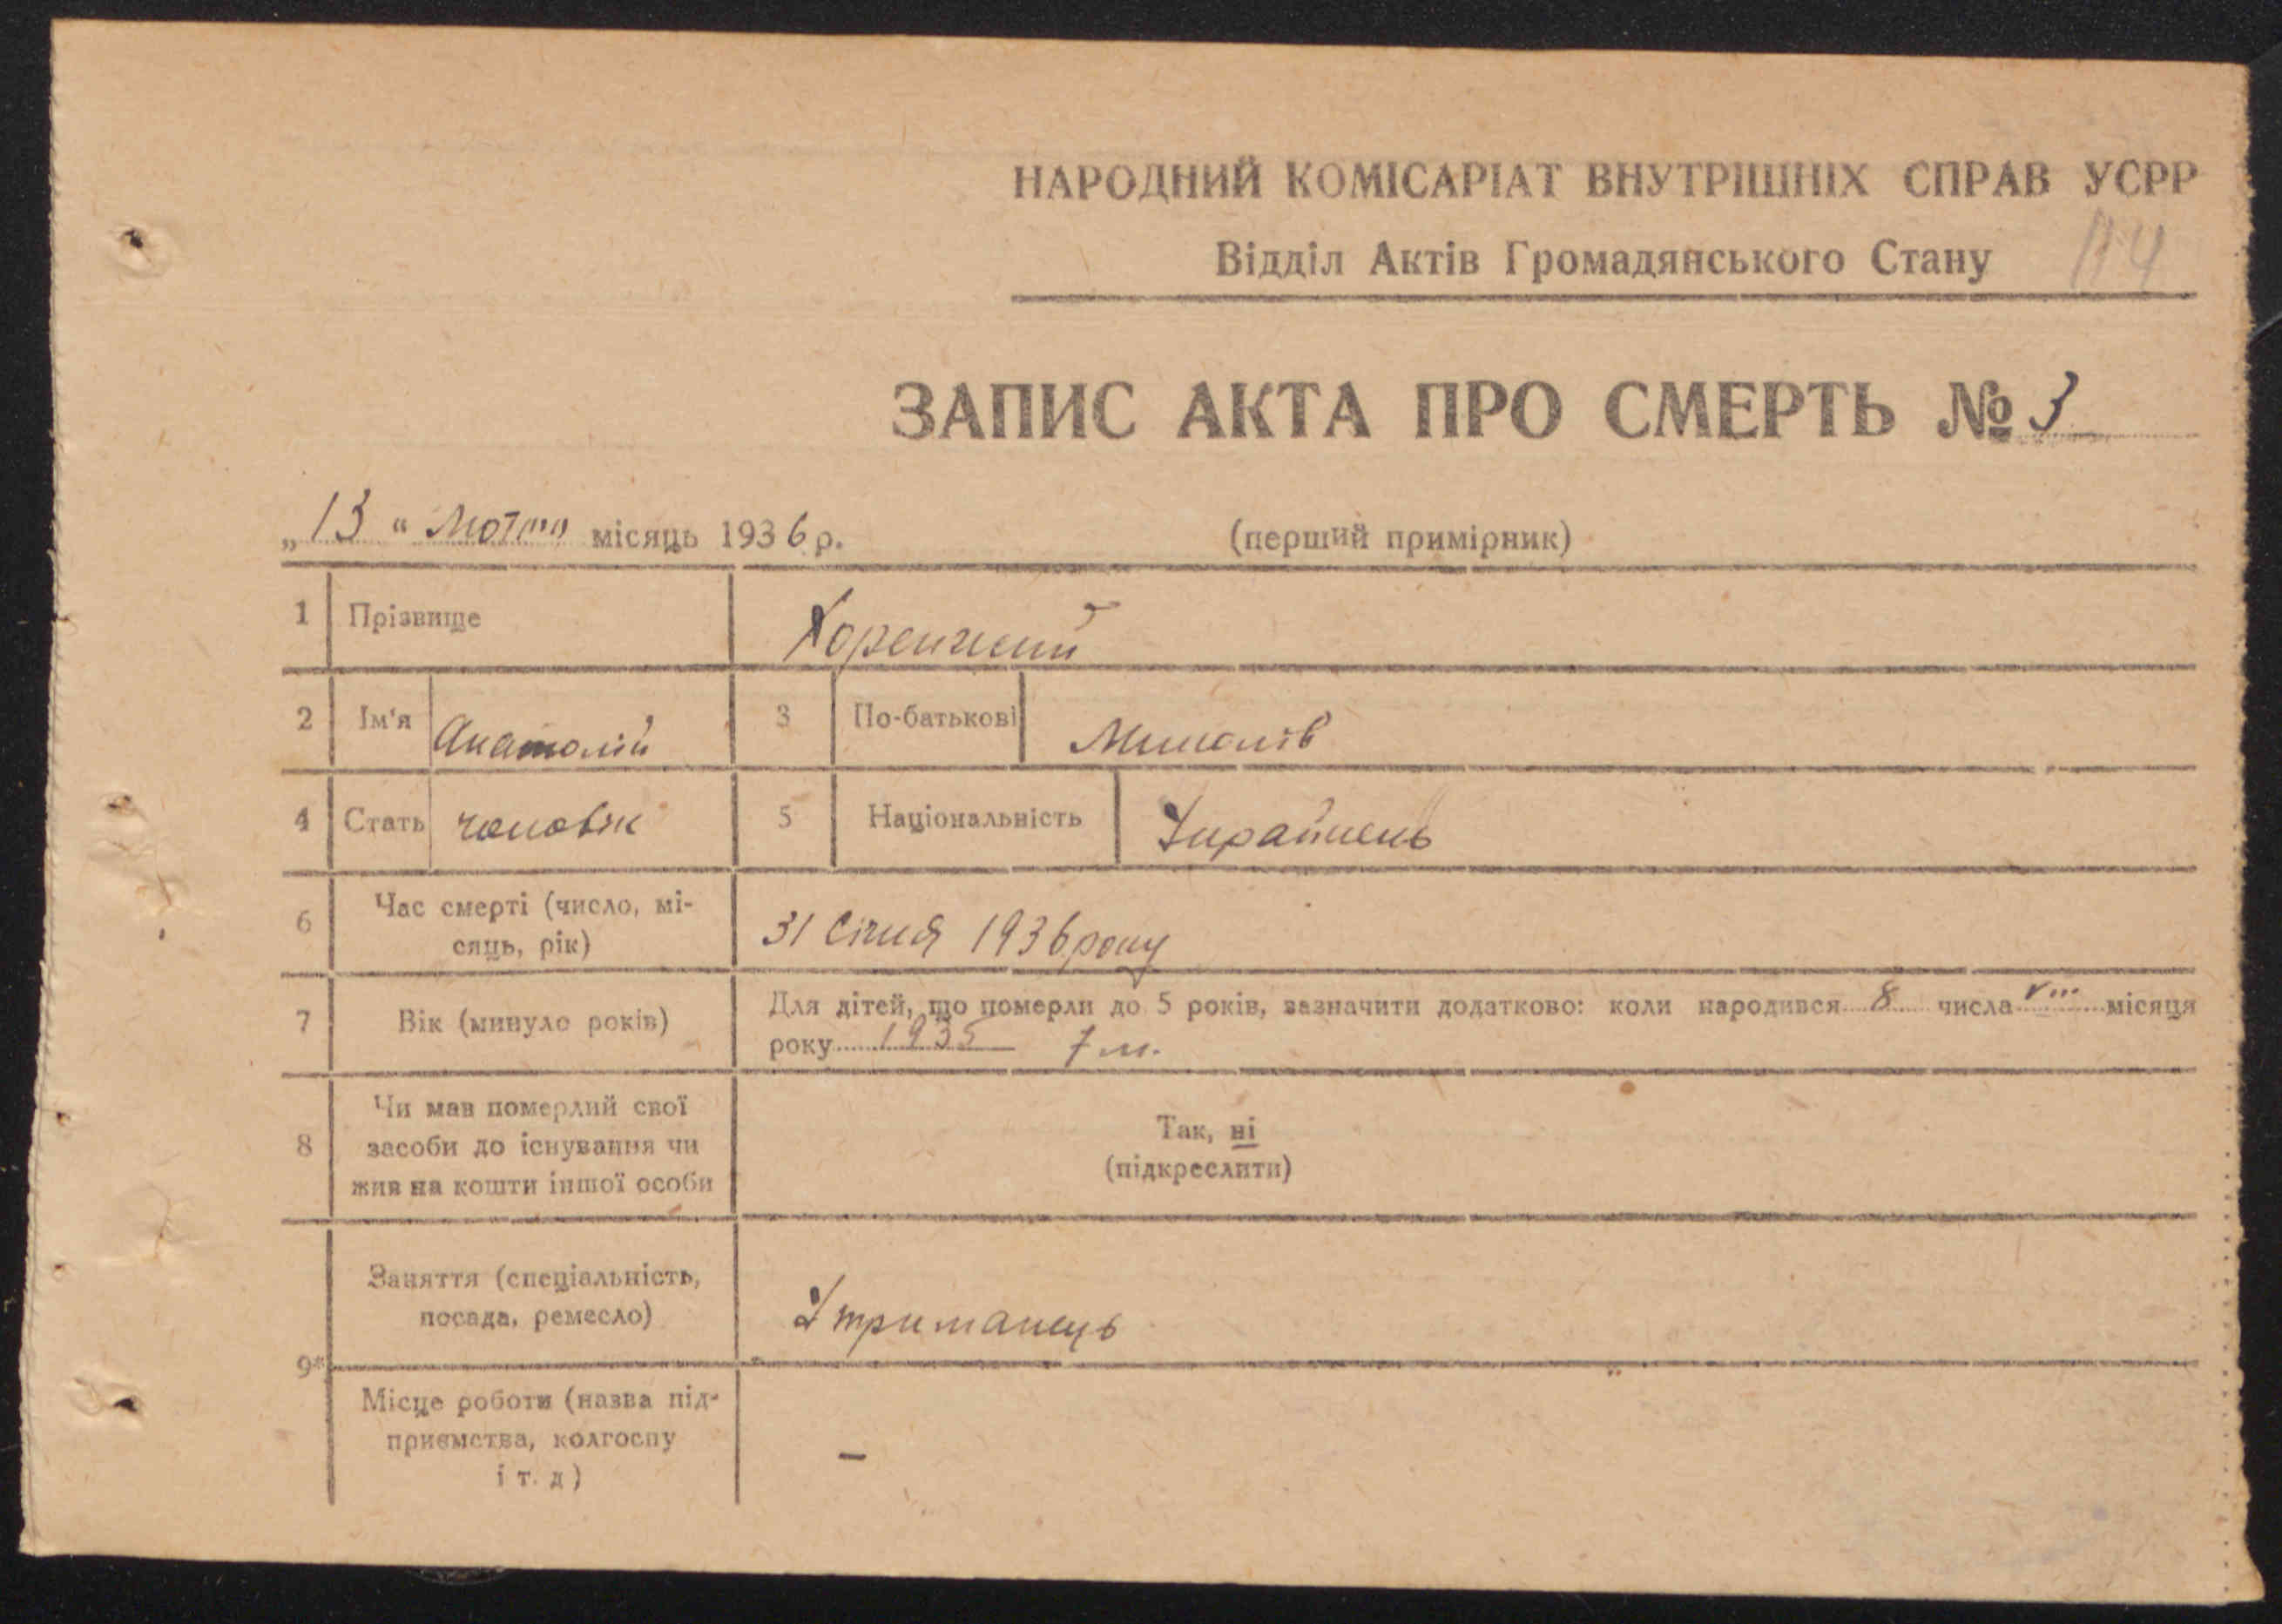 НАРОДНИЙ КОМІСАРІАТ ВНУТРІШНІХ СПРАВ УСРР
Відділ Актів Громадянського Стану
ЗАПИС АКТА ПРО СМЕРТЬ № 3
„13“ місяць 1936 р. (перший примірник)
1 Прізвище
2 Ім'я Анатолій 3 По-батькові
4 Стать чоловік 5 Національність Українець
6 Час смерті (число, мі-
сяць, рік) 31 Січня 1936 року
7 Вік (минуло років) Для дітей, що померли до 5 років, зазначити додатково: коли народився 8 числа VIII місяця
року 1935 7 м.
8 Чи мав померлий свої
засоби до існування чи
жив на кошти іншої особи
Так, ні
(підкреслити)
9* Заняття (спеціальність,
посада, ремесло) Утриманець
Місце роботи (назва під-
приємства, колгоспу
і т. д) –